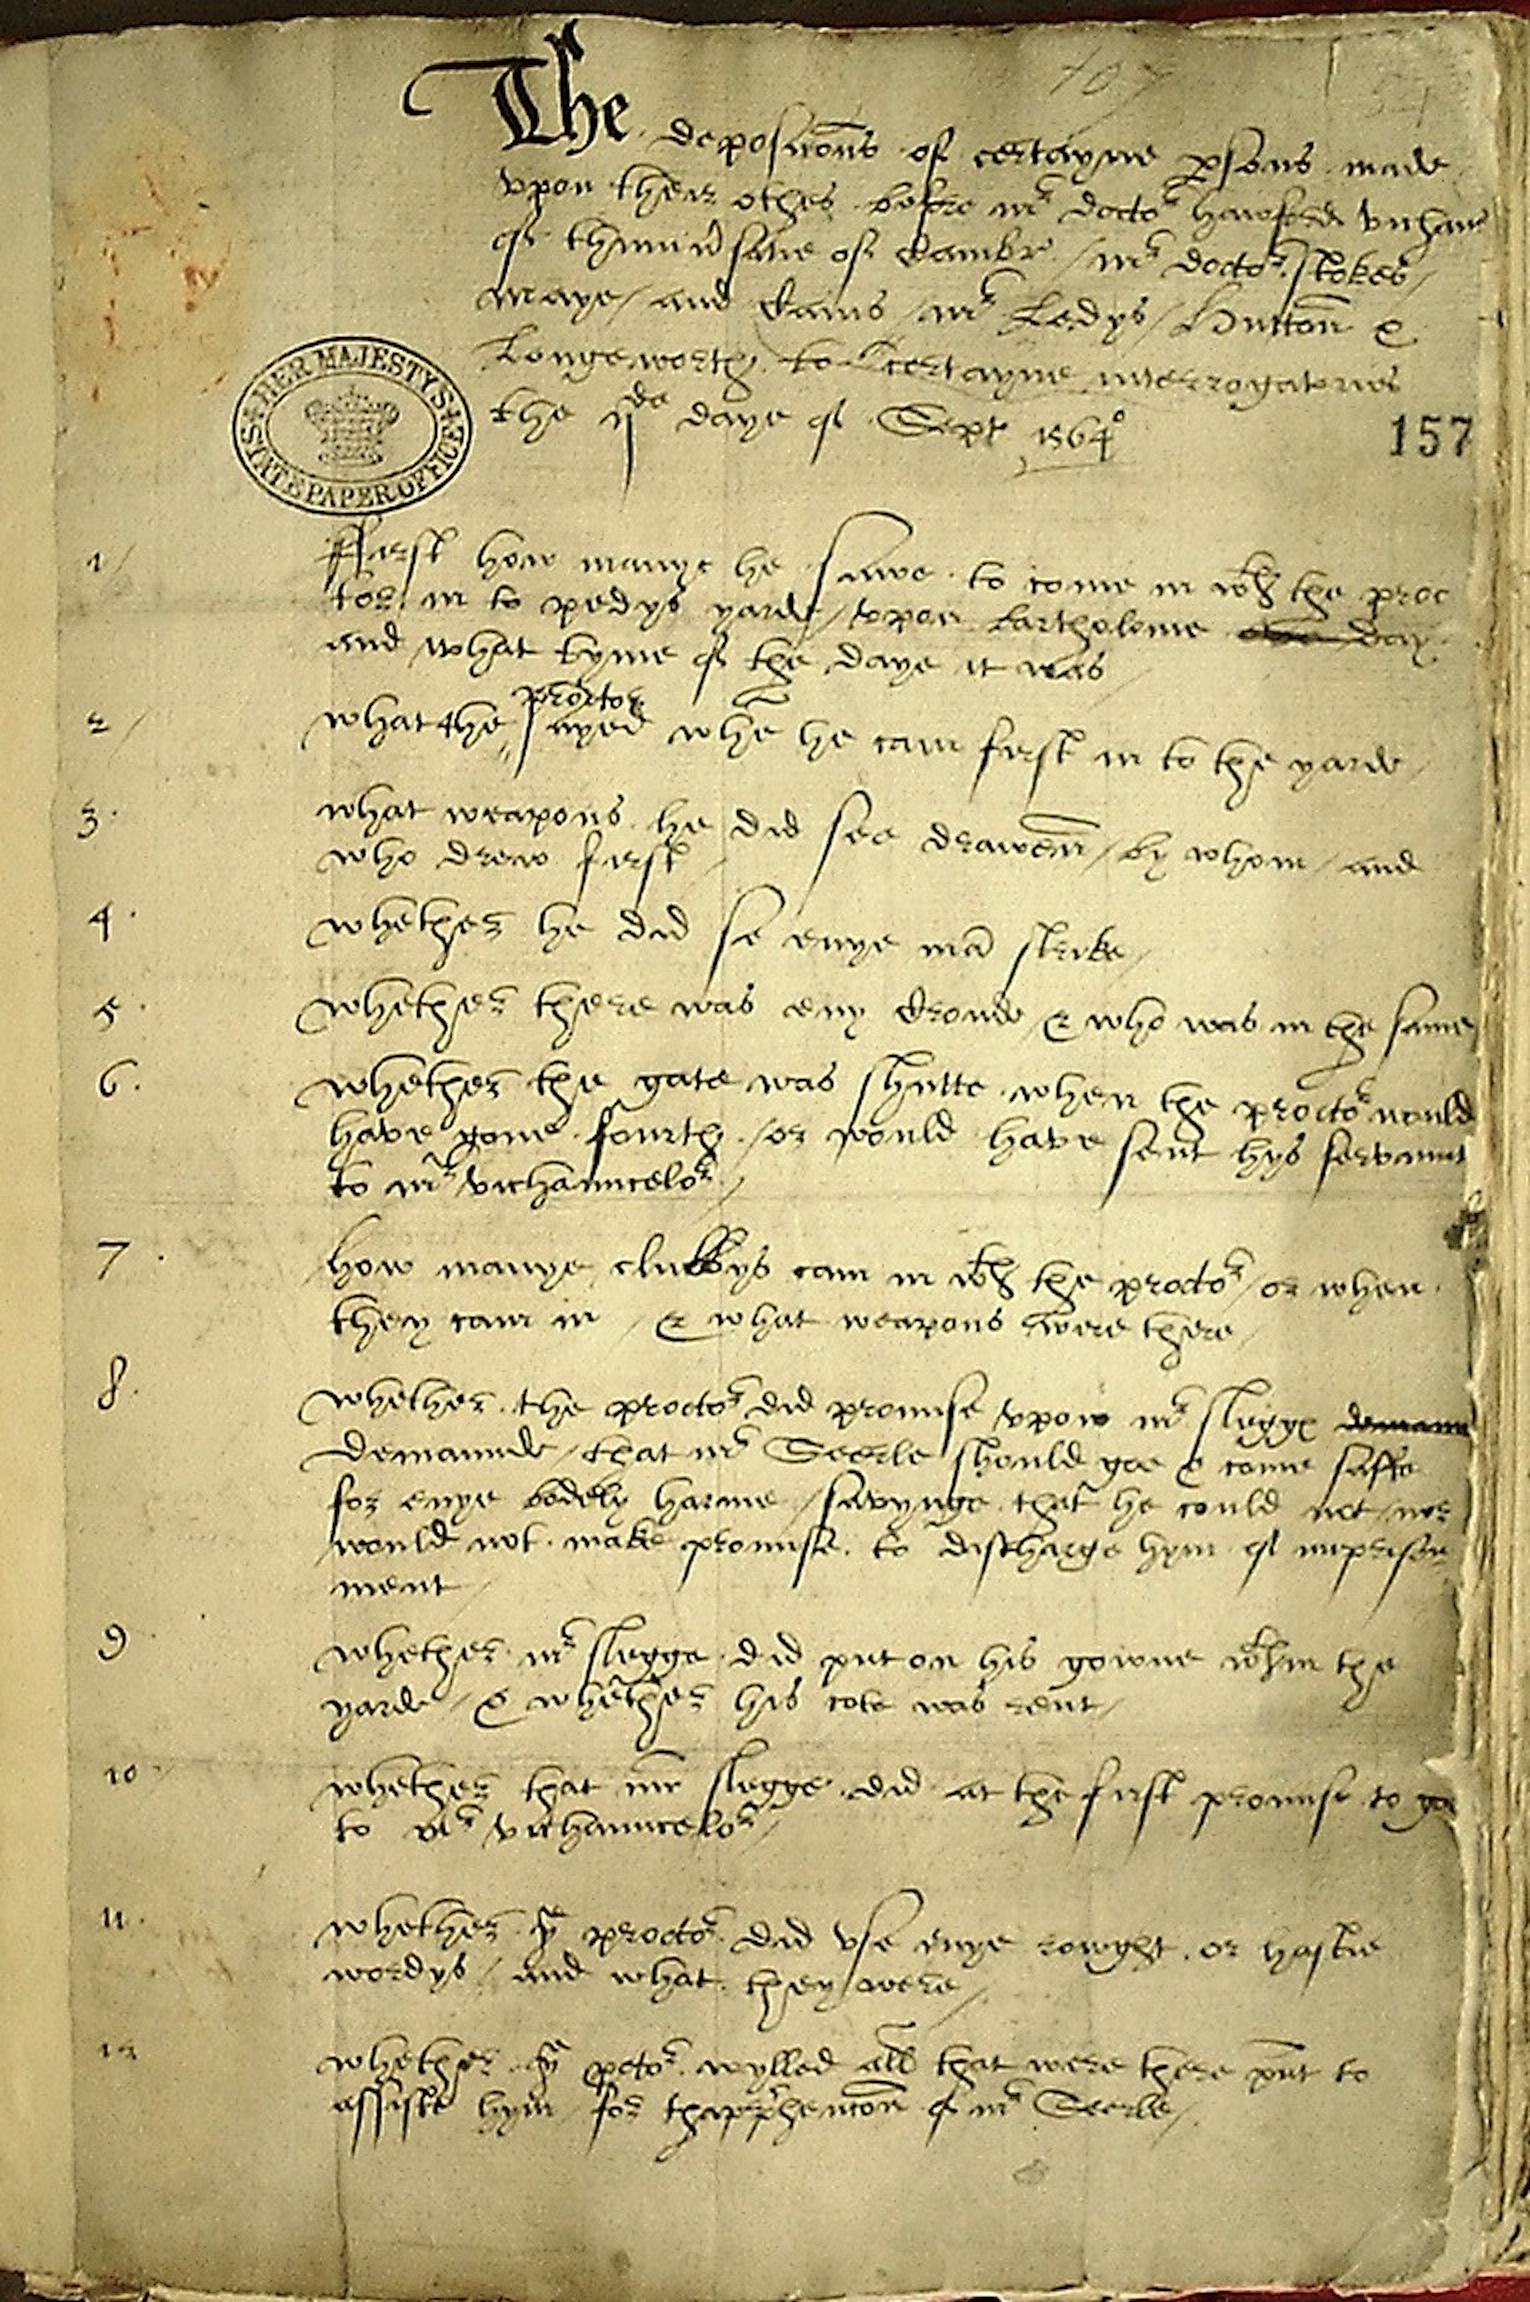 107
The deposicons of certayne psons made
vpon their othes before mr doctor hawford vichan
of thuniusitie of Cambr / mr doctor Stokes /
Maye / and Caius / mr Ledys / Hutton &
Longeworth to certayne interrogatories
the ijde daye of Sept 1564o
HER MAJESTY'S STATE PAPER OFFICE
157
1 / Fyrst how manye he sawe to come in wth the proc
tor in to pedys yarde / vpon bartholome day
and what tyme of the daye it was
proctor
2 / what the sayed whe he cam first in to the yarde /
3 what weapons he did see drawen / by whom / and
who drew first /
4 whether he did se enye ma strike /
5 whether there was eny croude & who was in the same
6 whether the gate was shutte when the proctor would
have gone fourth / or would have sent hys servaunt
to mr vichauncelor /
7 how manye clubbys cam in wth the proctor / or when
they cam in / & what weapons were there /
8 whether the proctor did promise vpon mr slegge demaun
demaunde / that mr Seerle should goe & come saffe
for enye bodely harme / savynge that he could not / nor
would not make promise to discharge hym of imprison
ment /
9 whether mr slegge did put on his gowne wthin the
yarde / & whether his cote was rent /
10 whether that mr slegge did at the first promise to go
to mr vichauncelor /
11 whether ye proctor did vse enye rowght or hastie
wordys / and what they were /
12 whether ye pctor wylled all that were there pnt to
assiste hym for thapprhencon of mr Seerle /